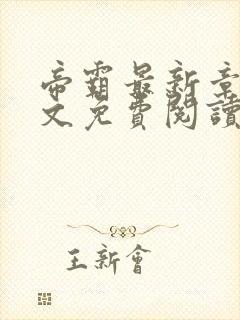 帝霸最新章
文免費閱讀
王新會